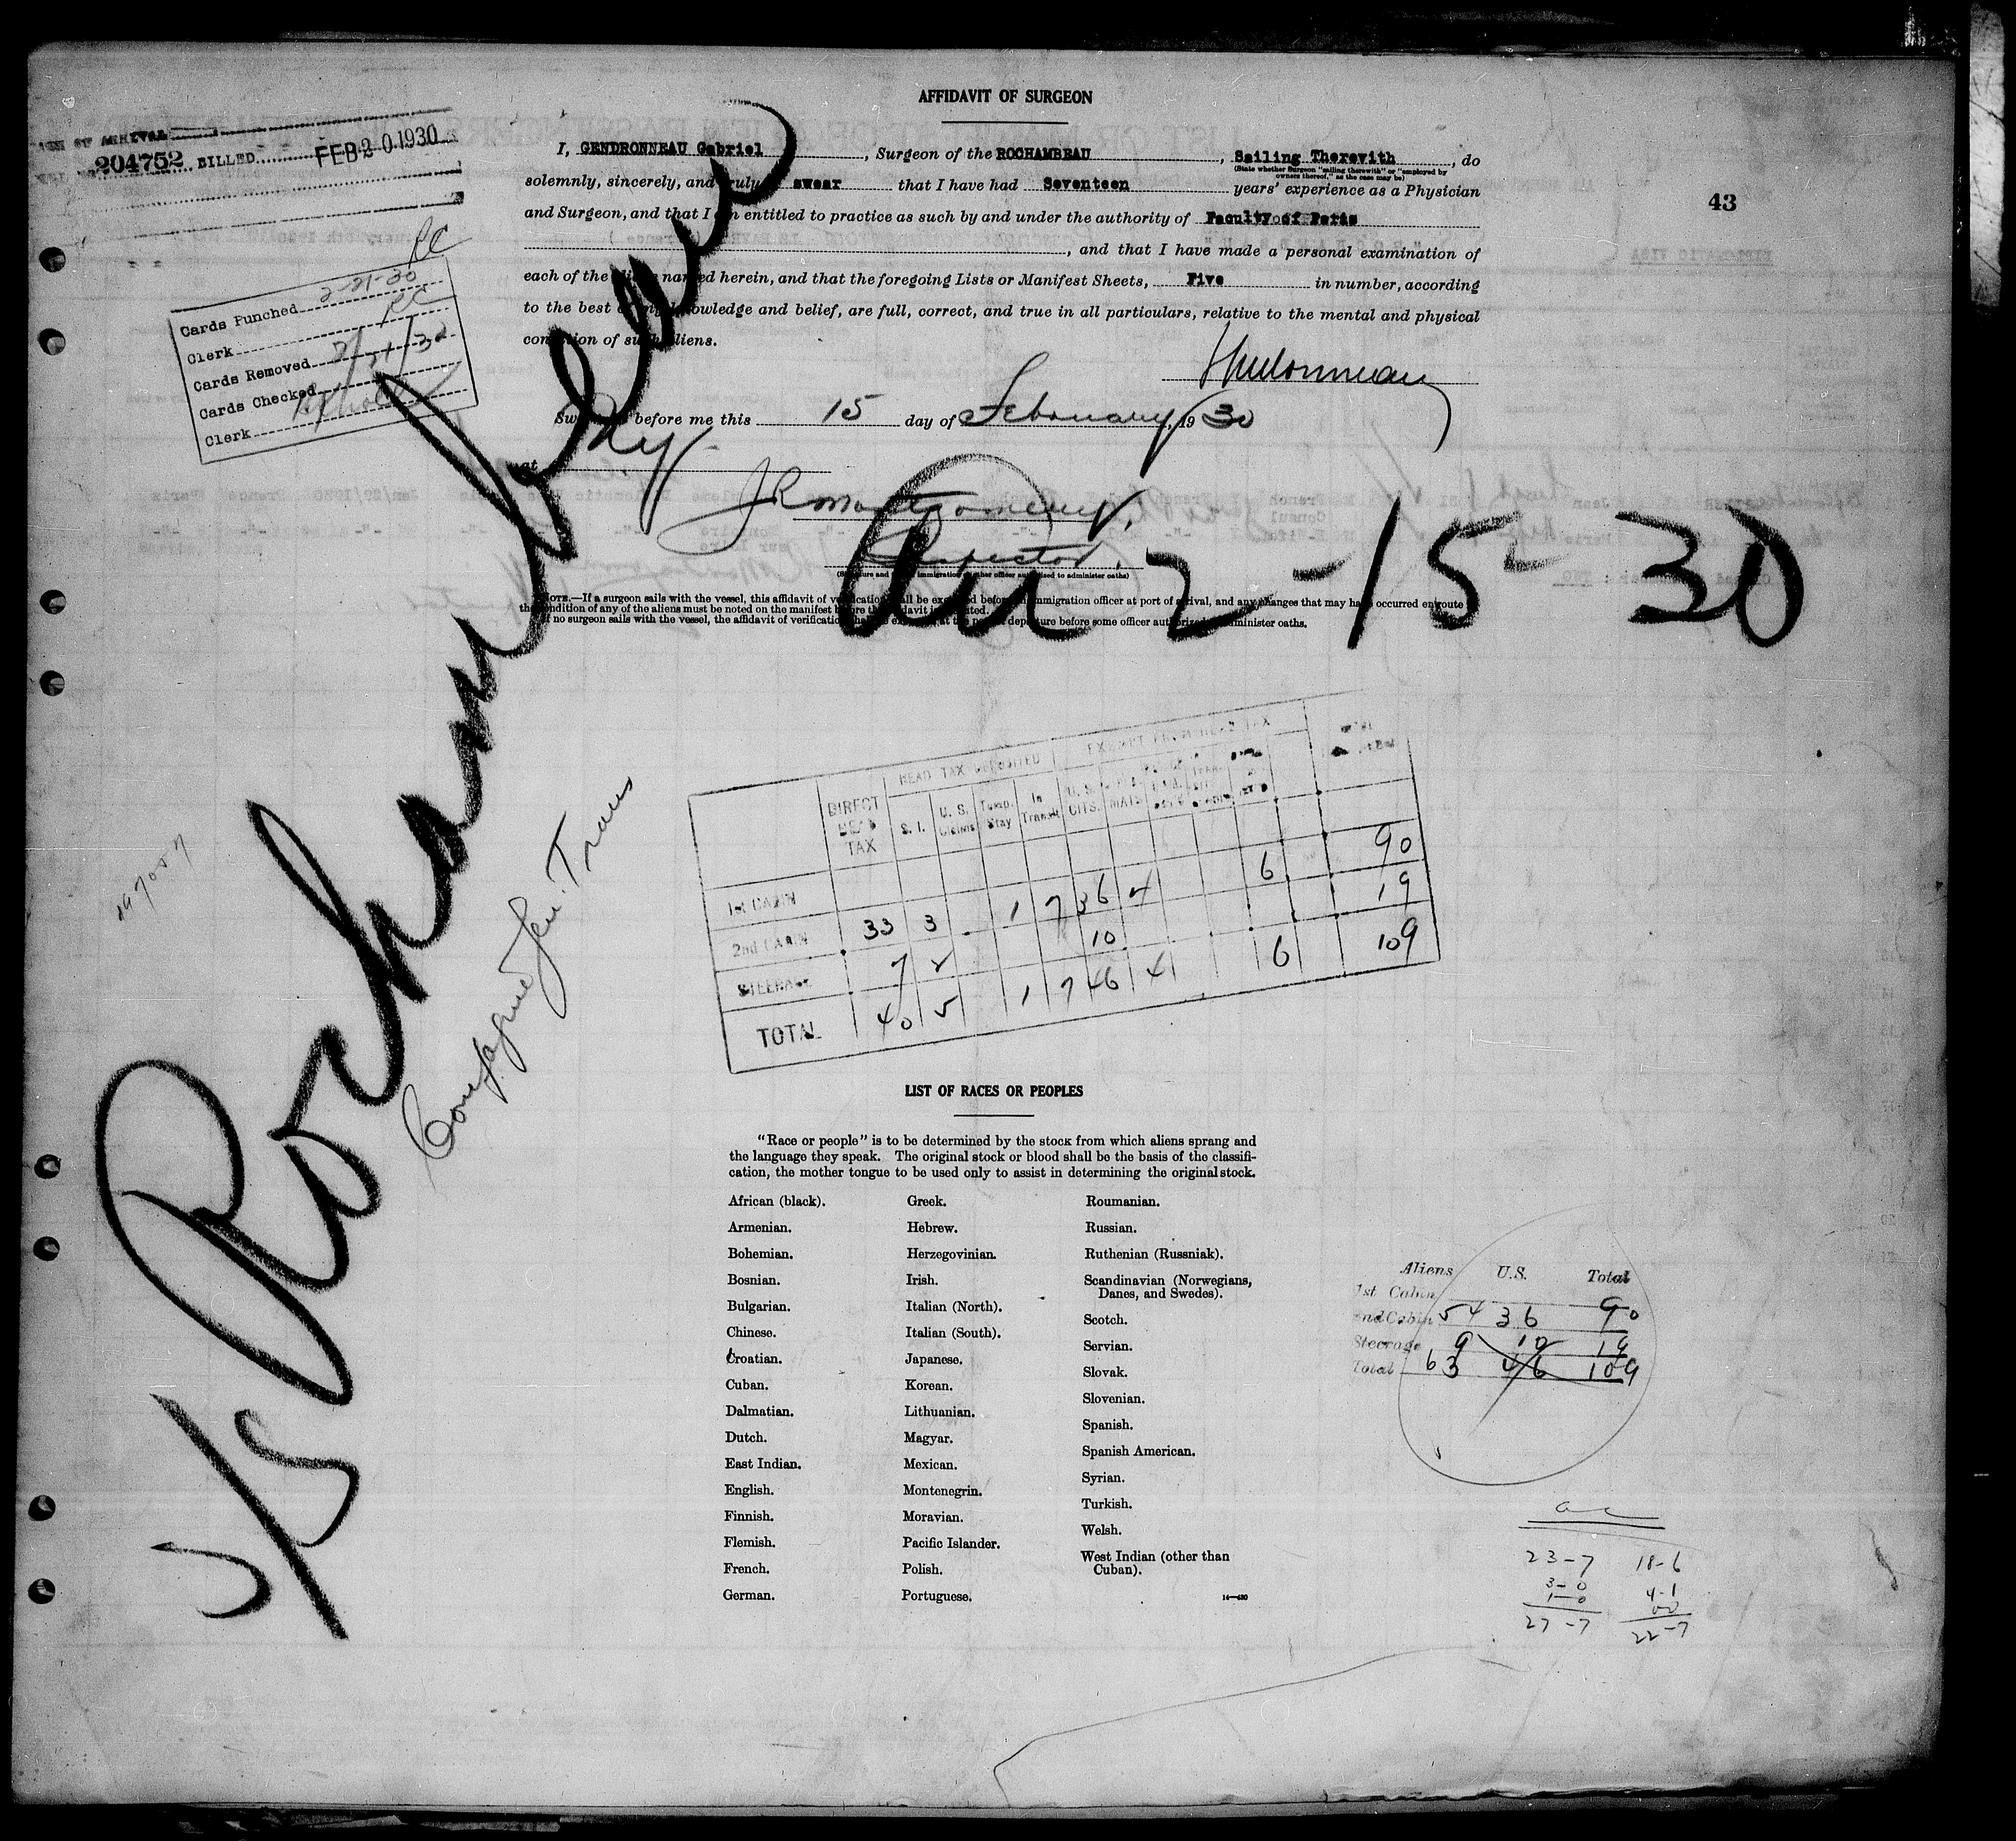 AFFIDAVIT OF SURGEON
204752 BILLED FEB 20 1930
43
I, GENDRONNEAU Gabriel, Surgeon of the ROCHAMBEAU, Sailing Therewith, do
(State whether Surgeon "sailing therewith" or "employed by
owners thereof," as the case may be)
solemnly, sincerely, and truly swear that I have had Seventeen years' experience as a Physician
and Surgeon, and that I am entitled to practice as such by and under the authority of Faculty of Paris
, and that I have made a personal examination of
each of the aliens named herein, and that the foregoing Lists or Manifest Sheets, Five in number, according
to the best of my knowledge and belief, are full, correct, and true in all particulars, relative to the mental and physical
condition of such aliens.
Cards Punched 2-21-30
Clerk RC
Cards Removed 2/21/30
Cards Checked
Clerk
before me this 15 day of February, 1930
at NY
JR Montgomery
Inspector.
NOTE.—If a surgeon sails with the vessel, this affidavit of verification shall be executed before an immigration officer at port of arrival, and any changes that may have occurred enroute
the condition of any of the aliens must be noted on the manifest before the affidavit is executed.
If no surgeon sails with the vessel, the affidavit of verification shall be executed at the port of departure before some officer authorized to administer oaths.
S/S Rochambeau
2-15-30
Compagnie Gen. Trans
HEAD TAX DEPOSITED EXEMPT FROM HEAD TAX
DIRECT HEAD TAX S. I. U. S. Claims Temp. Stay In Transit U. S. CITS.
1st CABIN
2nd CABIN 33 3 1 7 36 4 6 90
STEERAGE 7 2 10 19
TOTAL 40 5 1 7 46 4 6 109
LIST OF RACES OR PEOPLES
"Race or people" is to be determined by the stock from which aliens sprang and
the language they speak. The original stock or blood shall be the basis of the classifi-
cation, the mother tongue to be used only to assist in determining the original stock.
African (black).
Armenian.
Bohemian.
Bosnian.
Bulgarian.
Chinese.
Croatian.
Cuban.
Dalmatian.
Dutch.
East Indian.
English.
Finnish.
Flemish.
French.
German.
Greek.
Hebrew.
Herzegovinian.
Irish.
Italian (North).
Italian (South).
Japanese.
Korean.
Lithuanian.
Magyar.
Mexican.
Montenegrin.
Moravian.
Pacific Islander.
Polish.
Portuguese.
Roumanian.
Russian.
Ruthenian (Russniak).
Scandinavian (Norwegians,
Danes, and Swedes).
Scotch.
Servian.
Slovak.
Slovenian.
Spanish.
Spanish American.
Syrian.
Turkish.
Welsh.
West Indian (other than
Cuban).
Aliens U.S. Total
1st Cabin
2nd Cabin 54 36 90
Steerage 9 10 19
Total 63 46 109
23-7 18-6
3-0 4-1
1-0 00
27-7 22-7